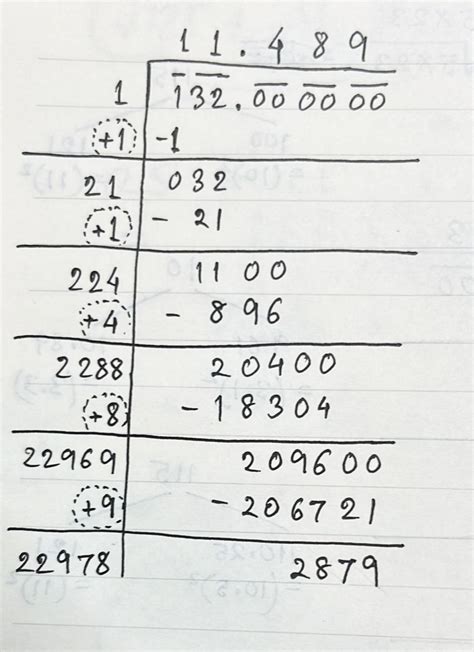 11.489
1 132.00 00 00
+1 -1
21 032
+1 - 21
224 1100
+4 - 896
2288 20400
+8 -18304
22969 209600
+9 -206721
22978 2879